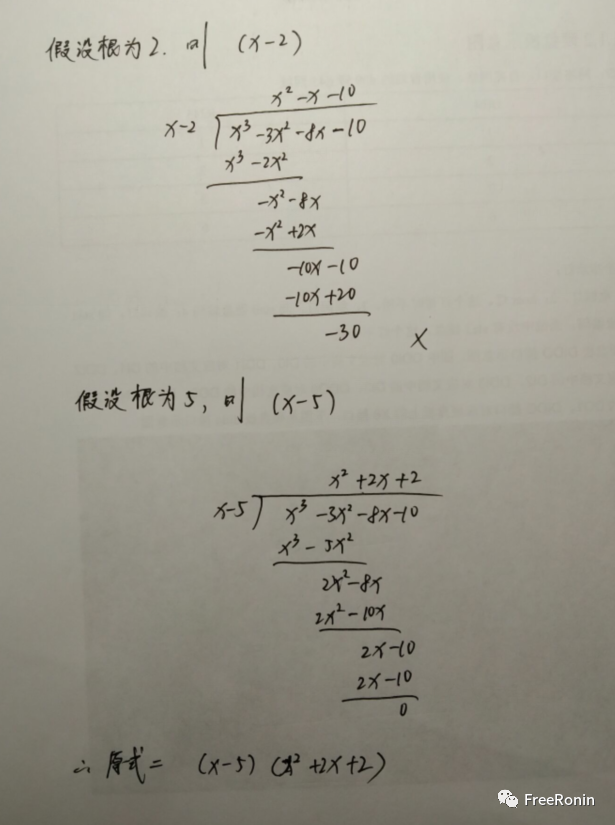 假设根为2. 则 (x-2)
x² -x -10
x-2 x³ -3x² -8x -10
x³ -2x²
-x² -8x
-x² +2x
-10x -10
-10x +20
-30 ×
假设根为5, 则 (x-5)
x² +2x +2
x-5 x³ -3x² -8x -10
x³ - 5x²
2x² -8x
2x² -10x
2x -10
2x -10
0
∴ 原式 = (x-5) (x² +2x +2)
FreeRonin